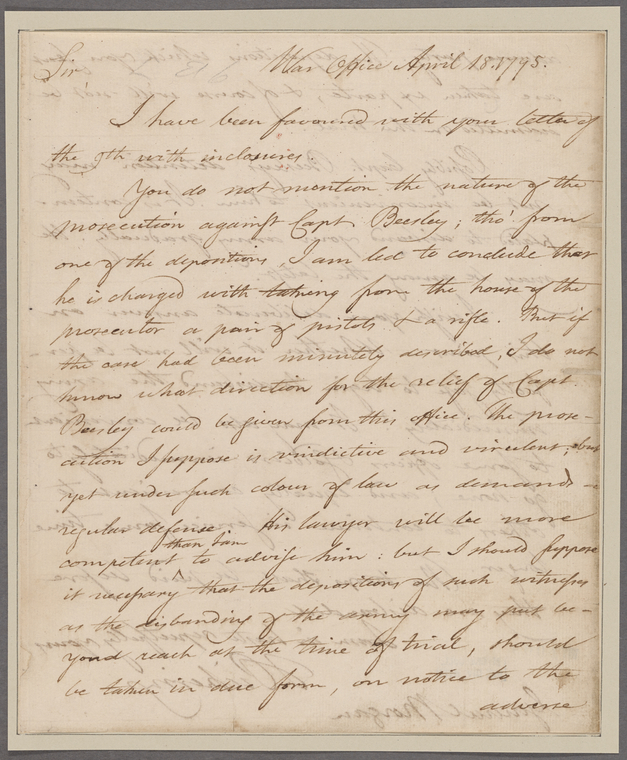 Sir War Office April 18. 1795.
I have been favoured with your letter of
the 9th with inclosures.
You do not mention the nature of the
prosecution against Capt Beesley; tho' from
one of the depositions, I am led to conclude that
he is charged with taking from the house of the
prosecutor a pair of pistols & a rifle. But if
the case had been minutely described, I do not
know what direction for the relief of Capt.
Beesley could be given from this office. The prose-
cution I suppose is vindictive and virulent; but
yet under such colour of law as demands a
regular defense. His lawyer will be more
than I am
competent to advise him: but I should suppose
it necessary that the depositions of such witnesses
as the disbanding of the army may put be-
yond reach at the time of trial, should
be taken in due form, on notice to the
adverse